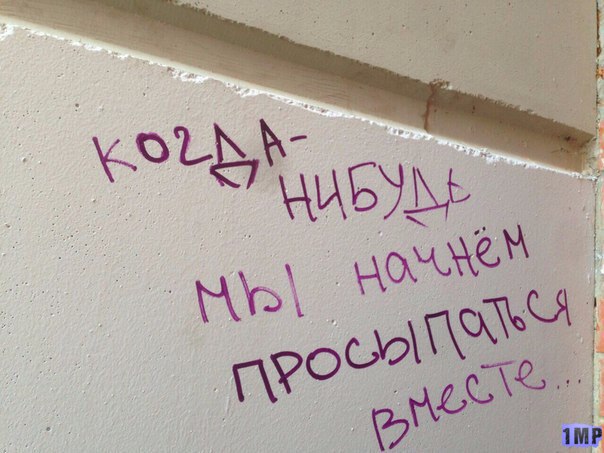 когда-
нибудь
мы начнём
просыпаться
вместе...
1MP